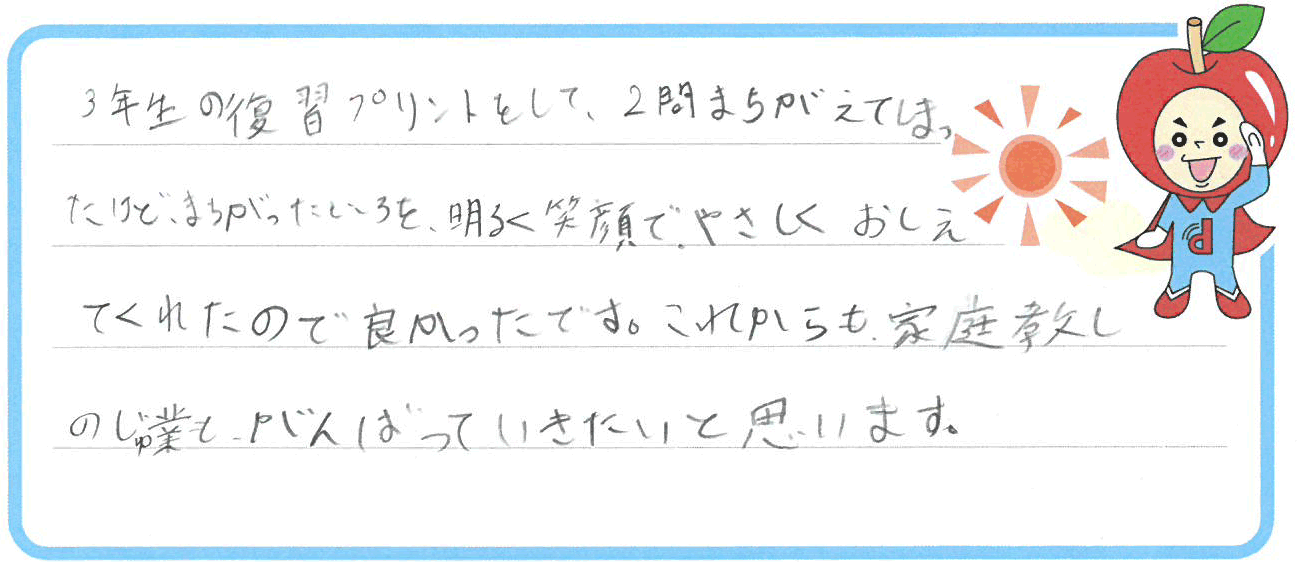 3年生の復習プリントをして、2問まちがえてしまっ
たけど、まちがったところを、明るく笑顔で、やさしくおしえ
てくれたので良かったです。これからも、家庭教し
のじゅ業も、がんばっていきたいと思います。